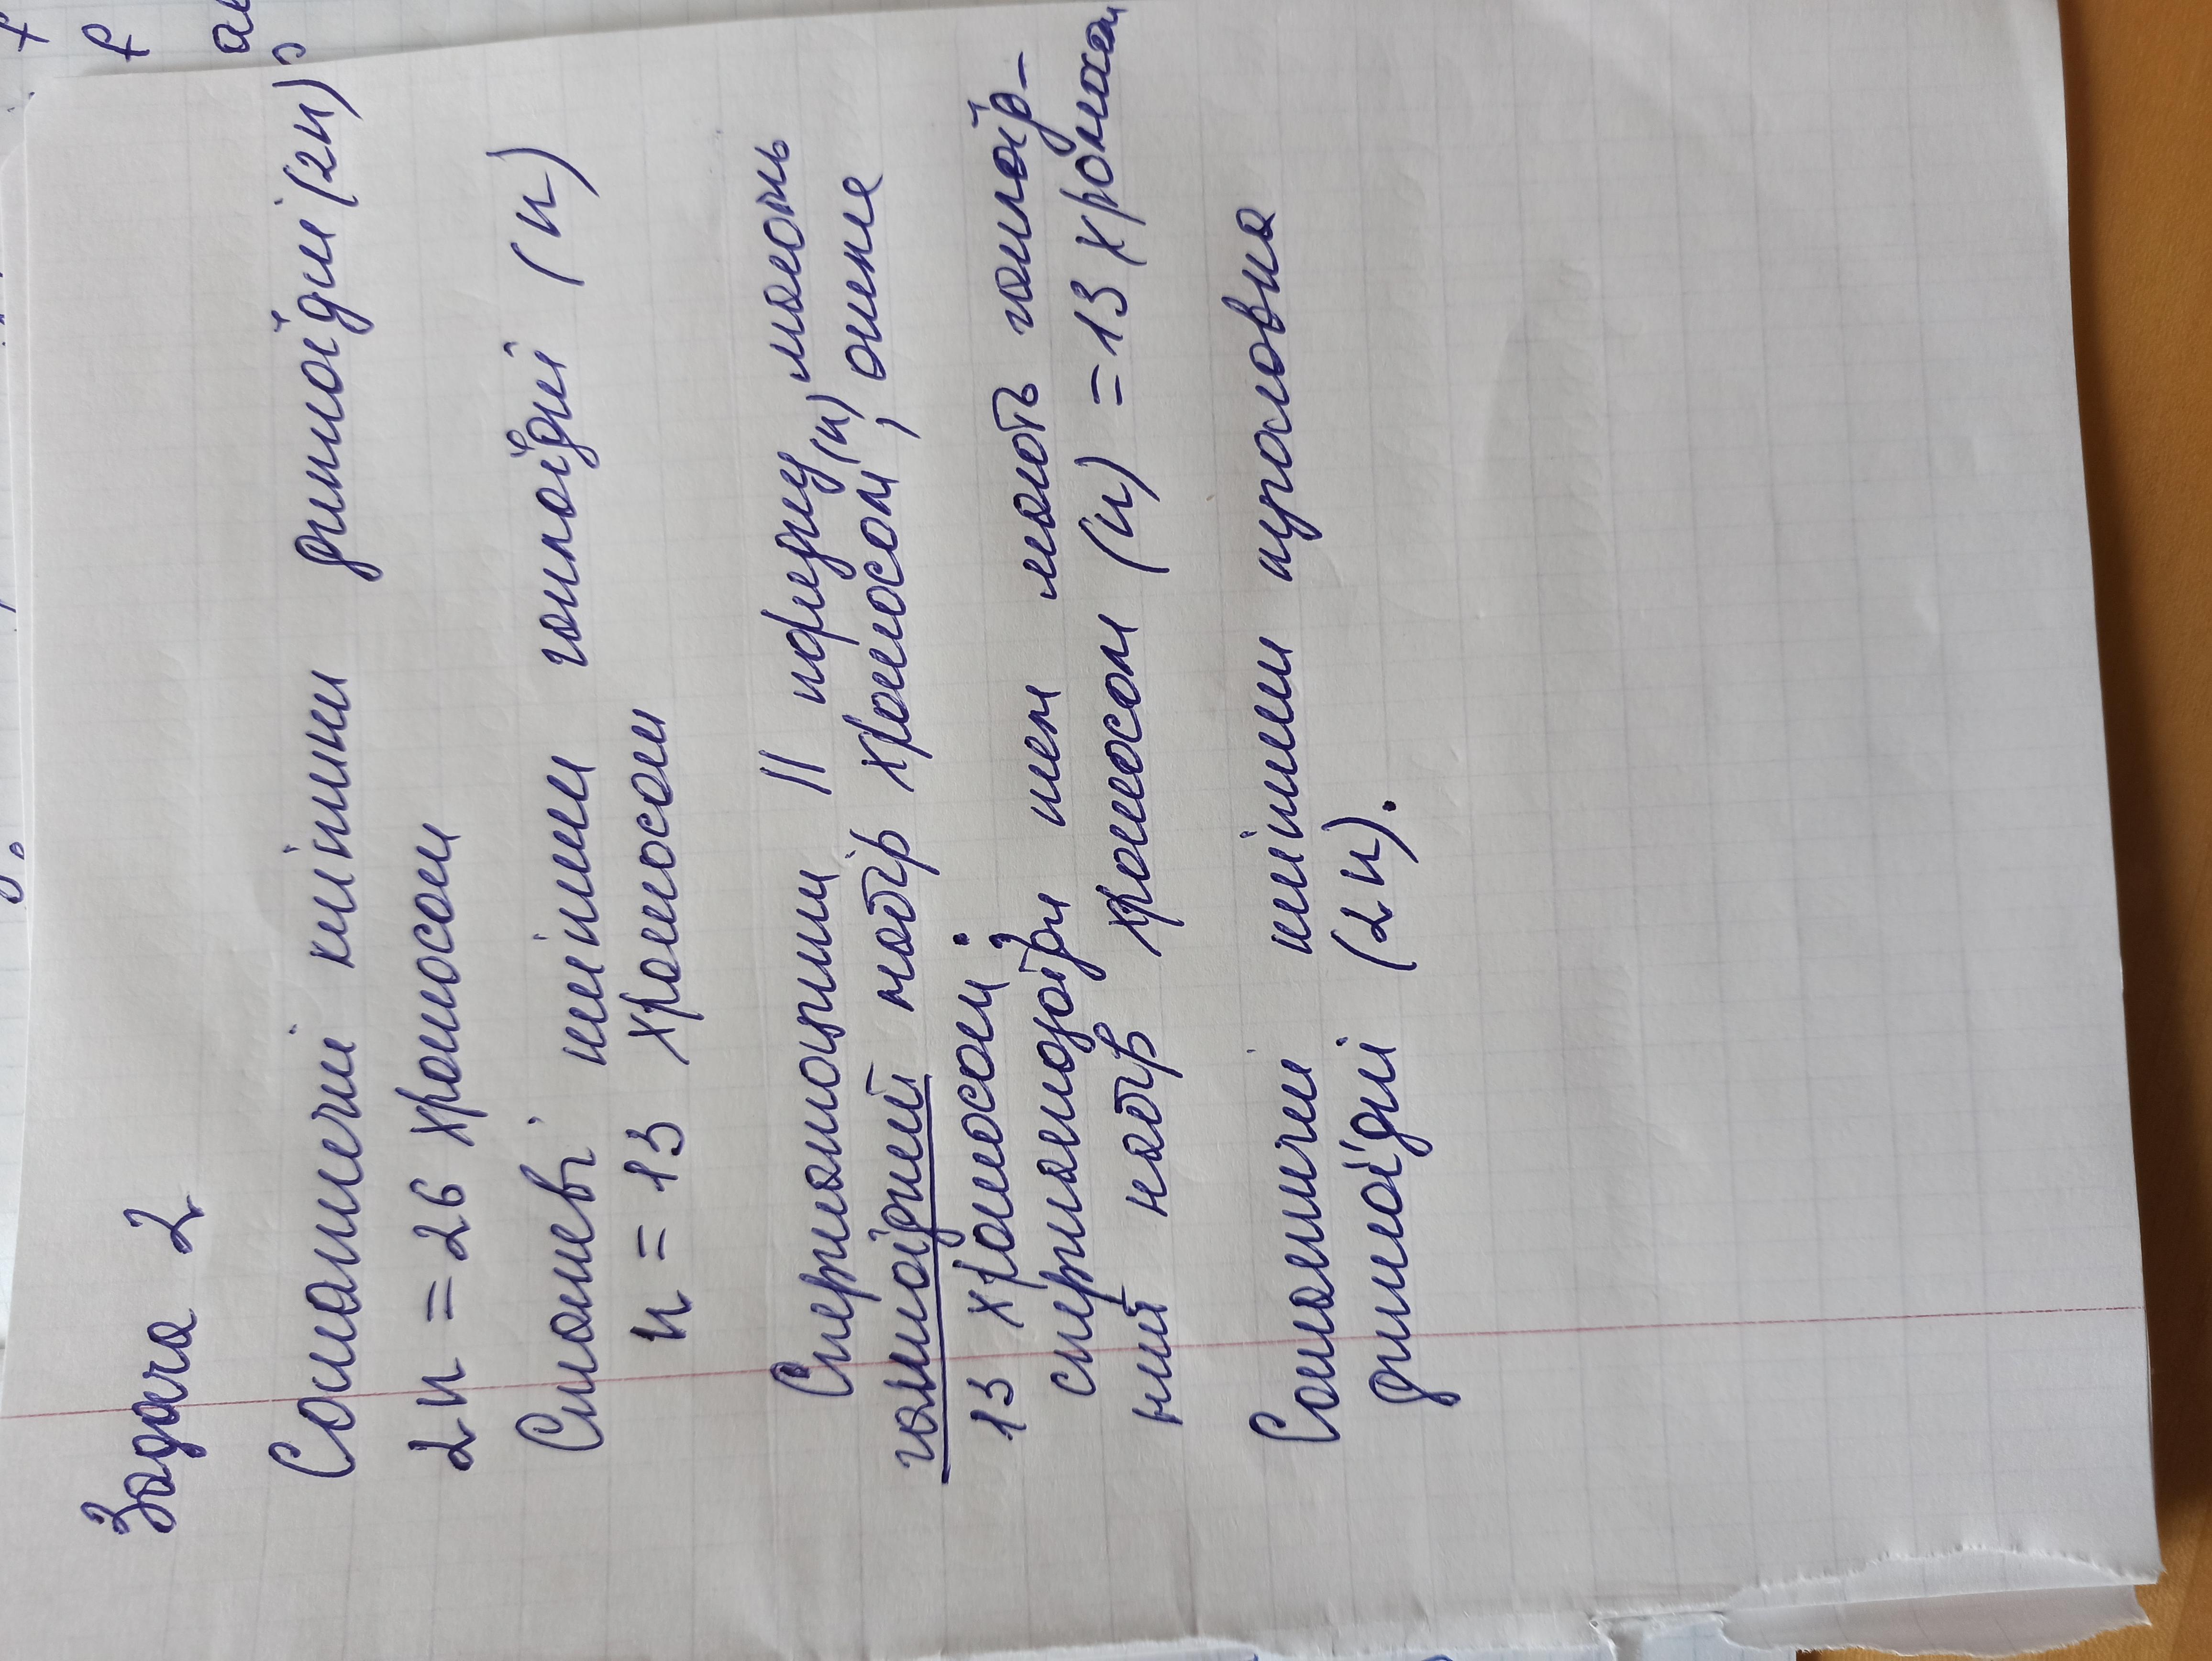 Задача 2
Соматичні клітини диплоїдні (2n)
2n = 26 хромосом
Статеві клітини гаплоїдні (n)
n = 13 хромосом
Сперматоцити II порядку мають
гаплоїдний набір (n) хромосом, отже
13 хромосом.
сперматозоїди теж мають гаплоїд-
ний набір хромосом (n) = 13 хромосом
Соматичні клітини щропавна
диплоїдні (2n).